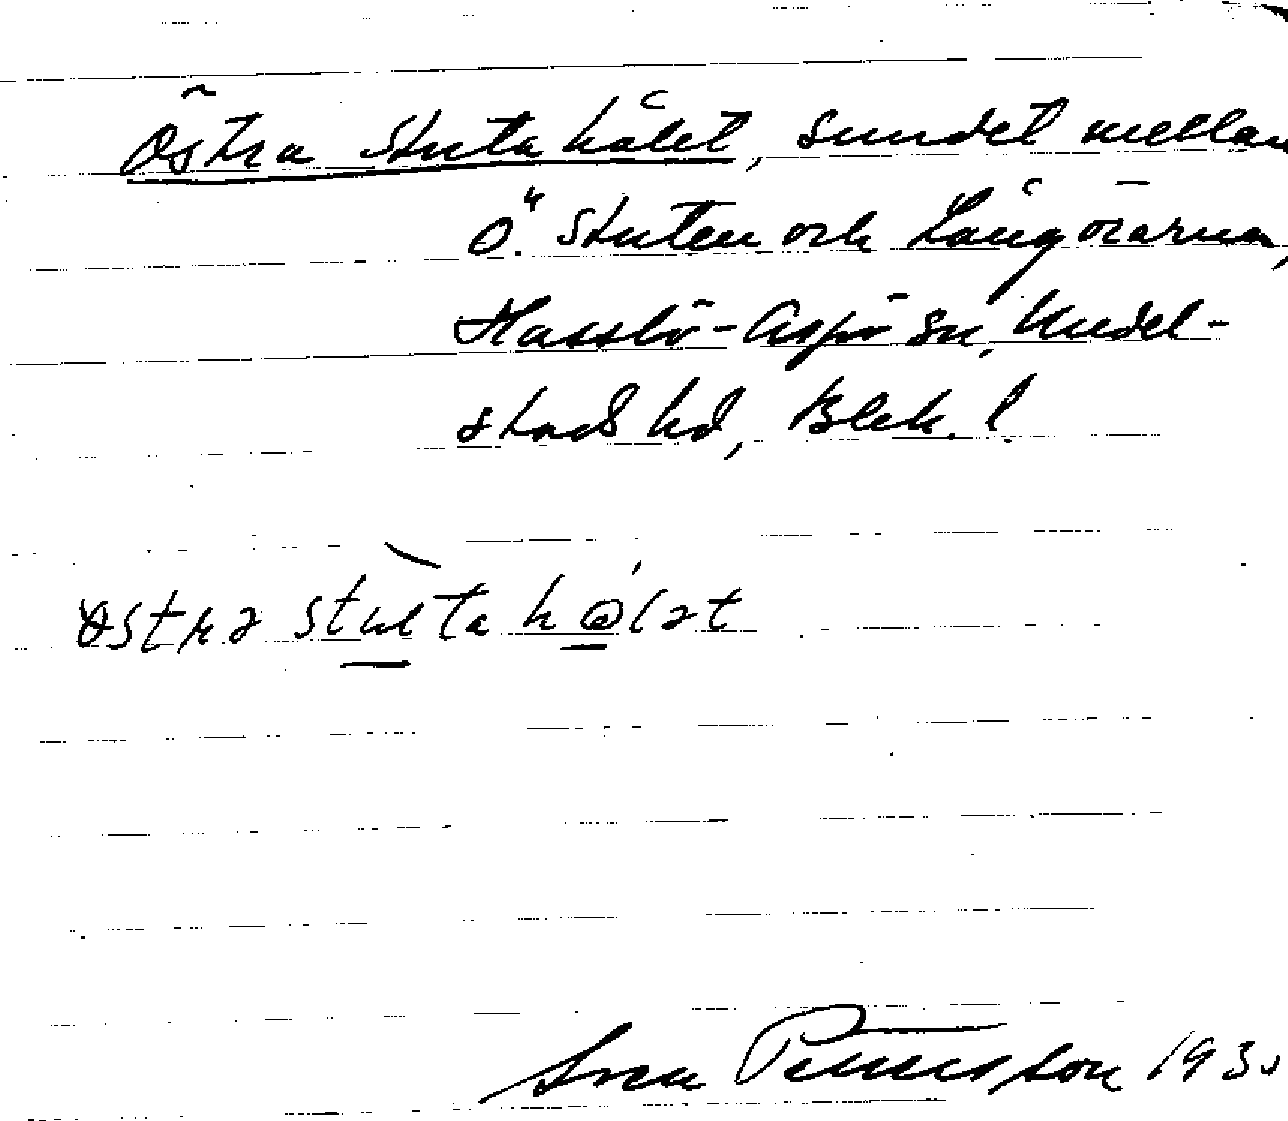 Östra Stuta hålet, sundet mellan
Ö. Stuten och Långörarna,
Hasslö-Aspö sn, Medel-
stads hd, Blek. l.
østra stuta hålet
Sven Petersson 1930